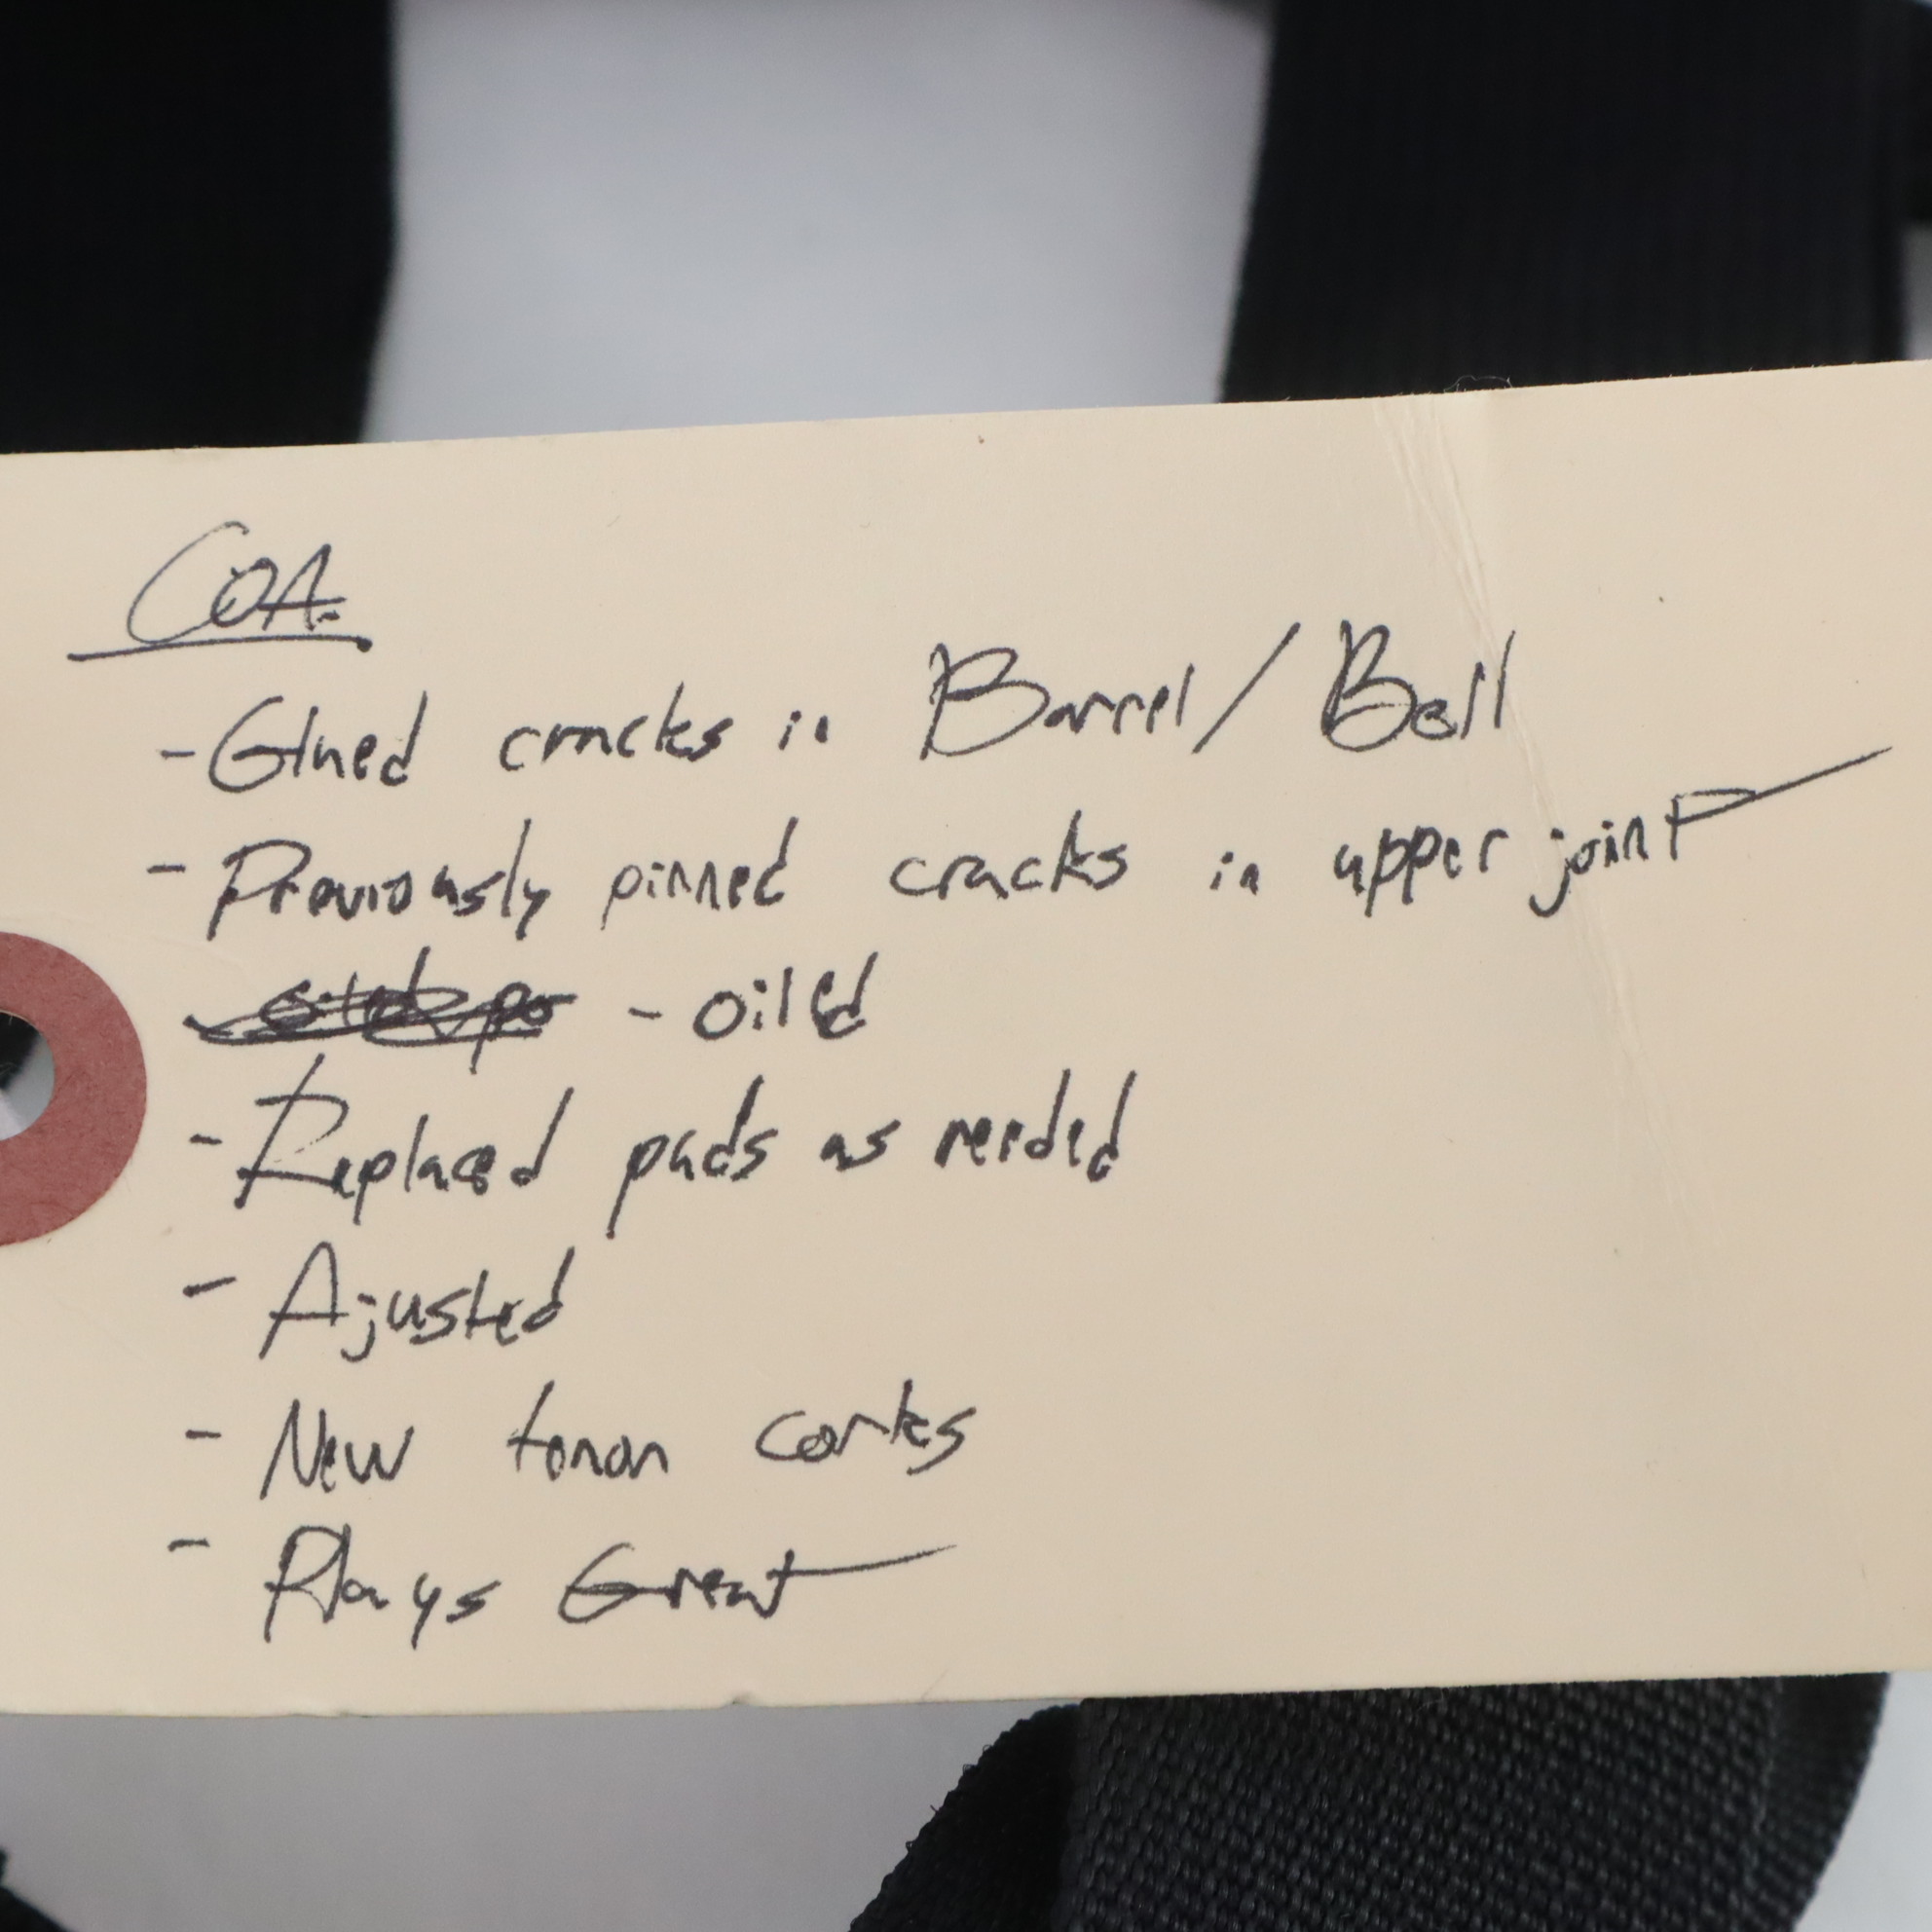 COA.
- Glued cracks in Barrel/Bell
- Previously pinned cracks in upper joint
- oiled
- Replaced pads as needed
- Ajusted
- New tenon corks
- Plays Great